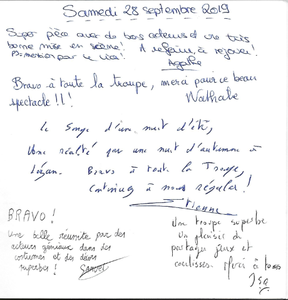 Samedi 28 septembre 2019
Super pièce avec de bons acteurs et une très
bonne mise en scène! A refaire, à rejouer!
Agathe
Bravo à toute la troupe, merci pour ce beau
spectacle!!!
Nathalie
le Songe d'une nuit d'été,
Une réalité par une nuit d'automne à
Bravo à toute la Troupe,
continuez à nous régaler!
Etienne
BRAVO!
Une belle réussite par des
acteurs géniaux dans des
costumes et des décors
superbes!
Une troupe superbe
un plaisir de
partager jeux et
coulisses. Merci à tous
Isa